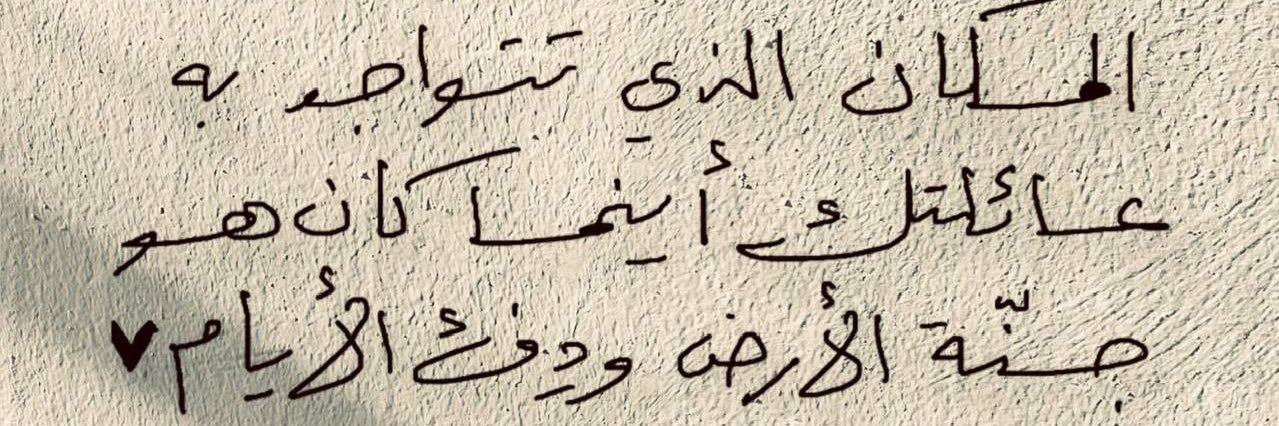 المكان الذي تتواجد به
عائلتك أينما كان هو
جنّة الأرض ودفئ الأيام ♥